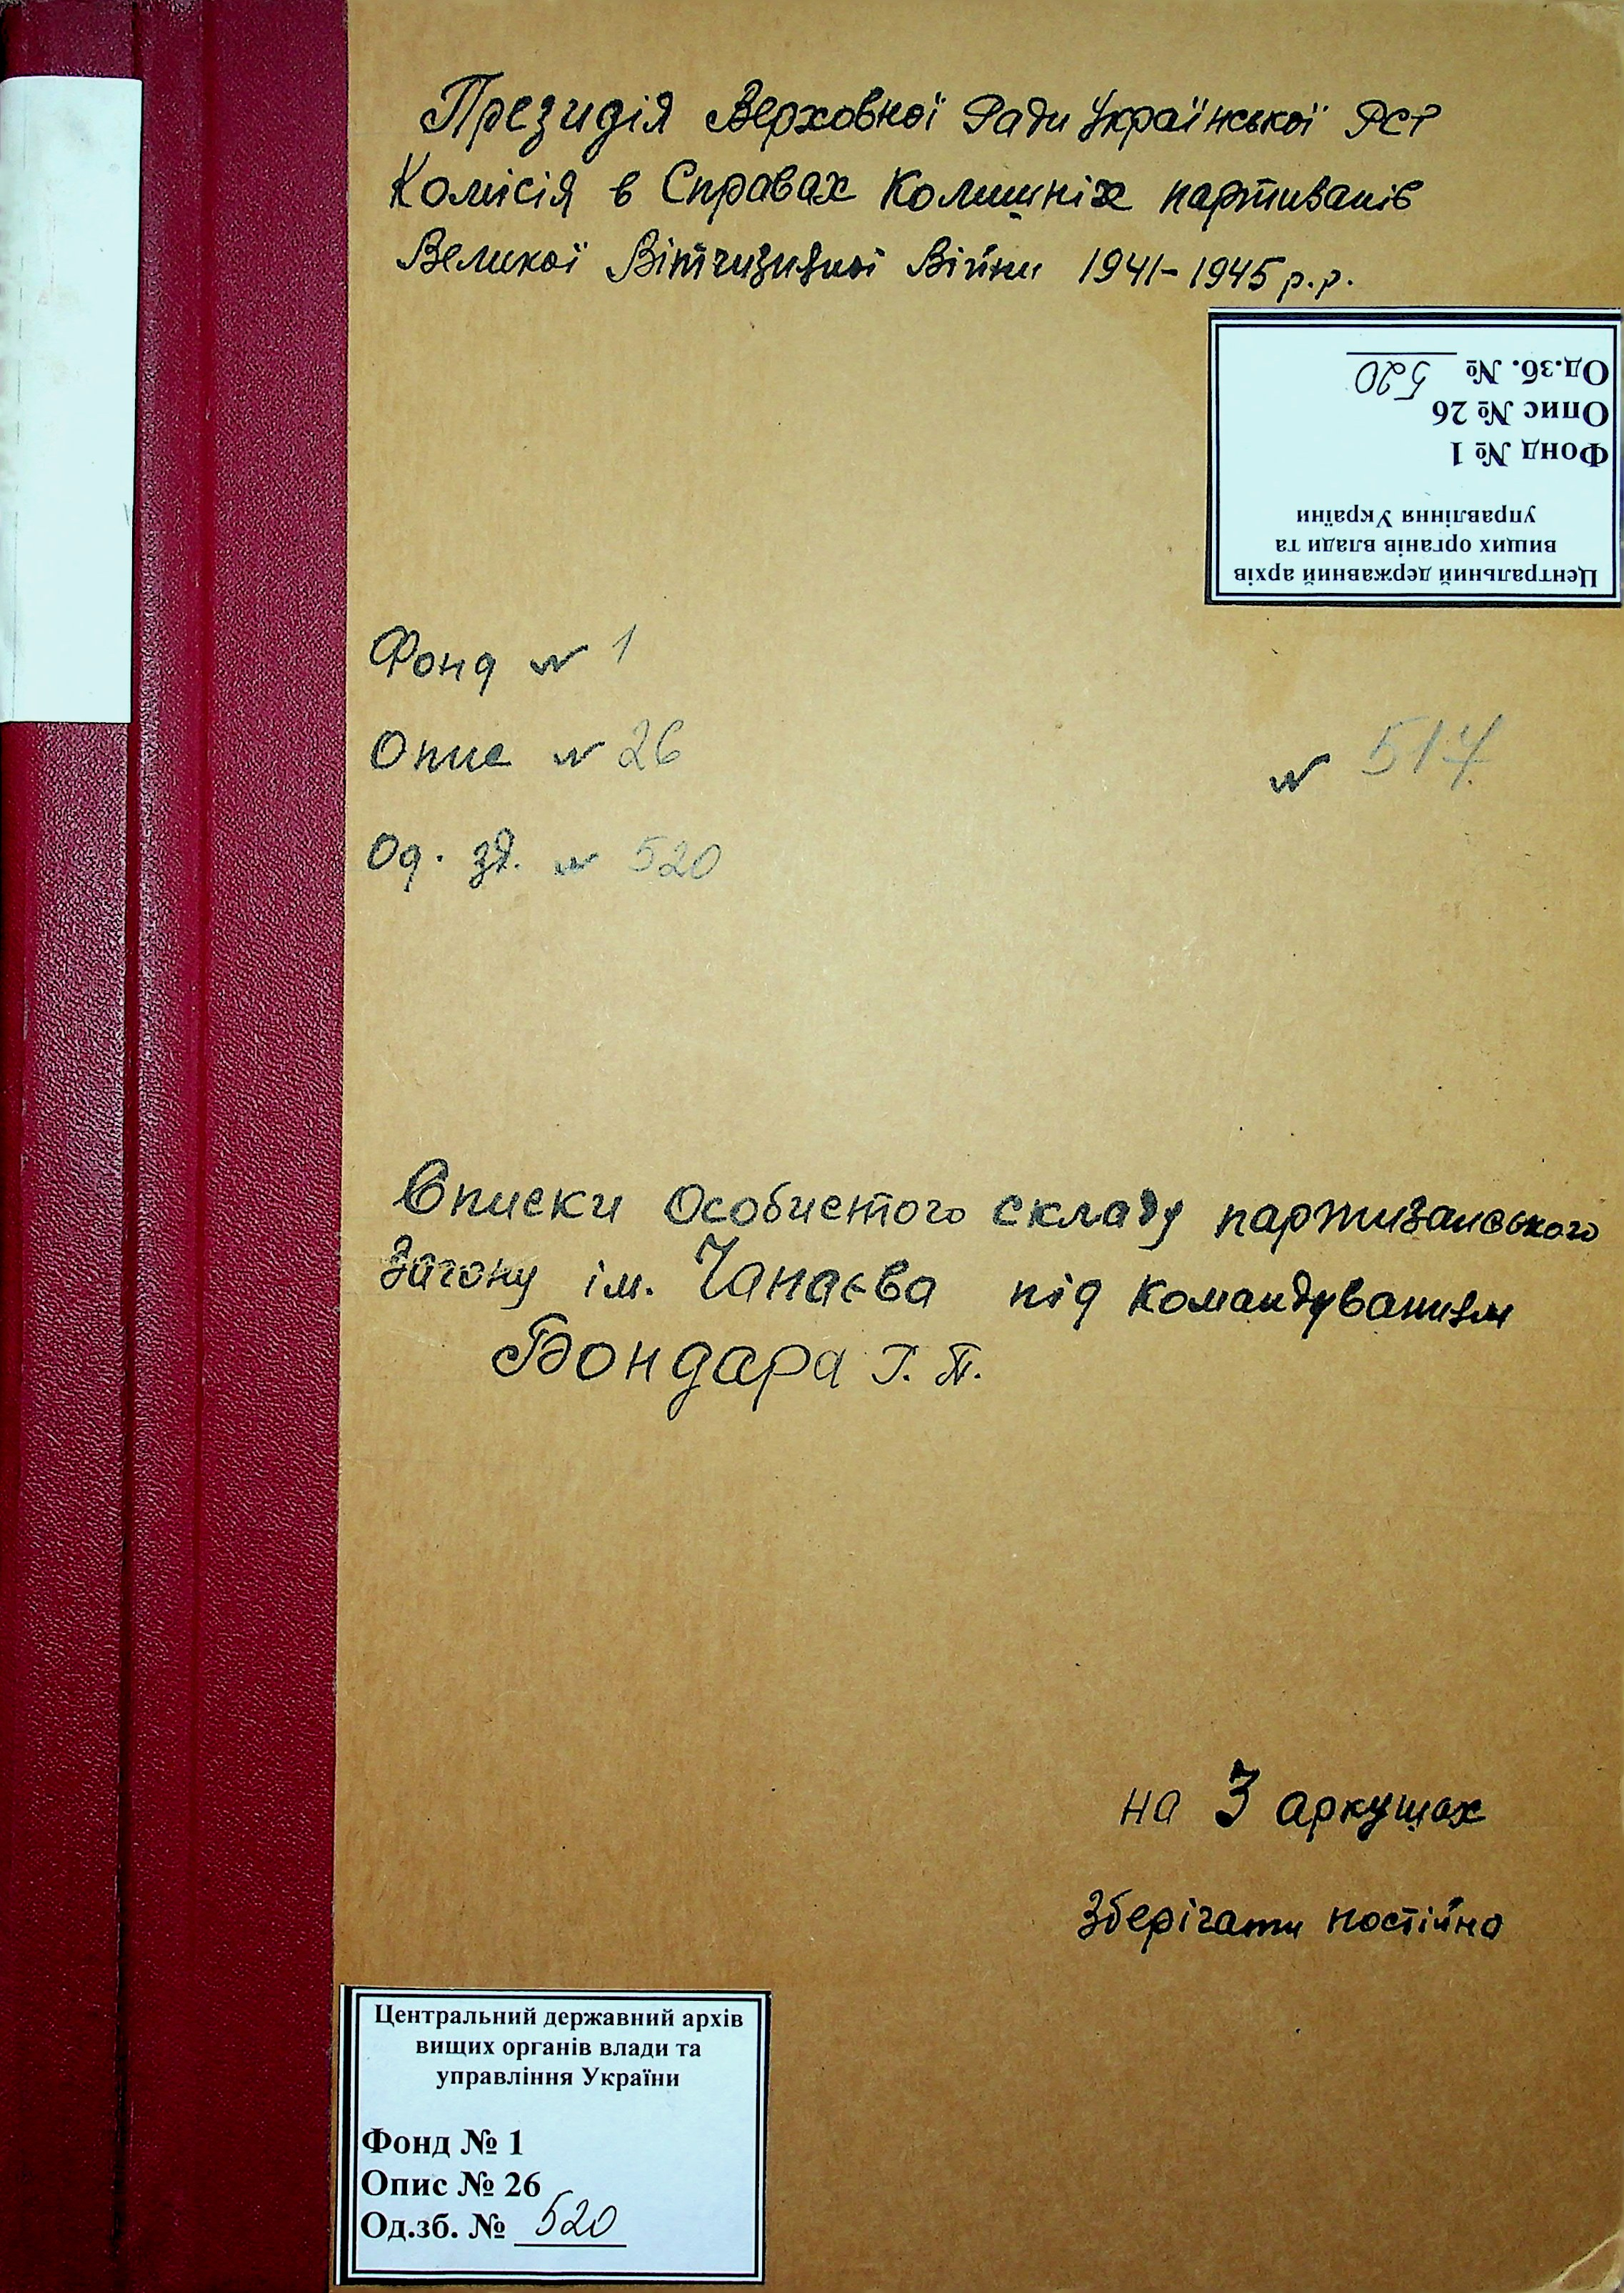 Президія Верховної Ради Української РСР
Комісія в Справах Колишніх партизанів
Великої Вітчизняної Війни 1941-1945 р.р.
Центральний державний архів
вищих органів влади та
управління України
Фонд № 1
Опис № 26
Од.зб. № 520
Фонд № 1
Опис № 26
№ 517
Од. зб. № 520
Списки Особистого складу партизанського
Загону ім. Чапаєва під Командуванням
Бондара Г. П.
на 3 аркушах
Зберігати постійно
Центральний державний архів
вищих органів влади та
управління України
Фонд № 1
Опис № 26
Од.зб. № 520